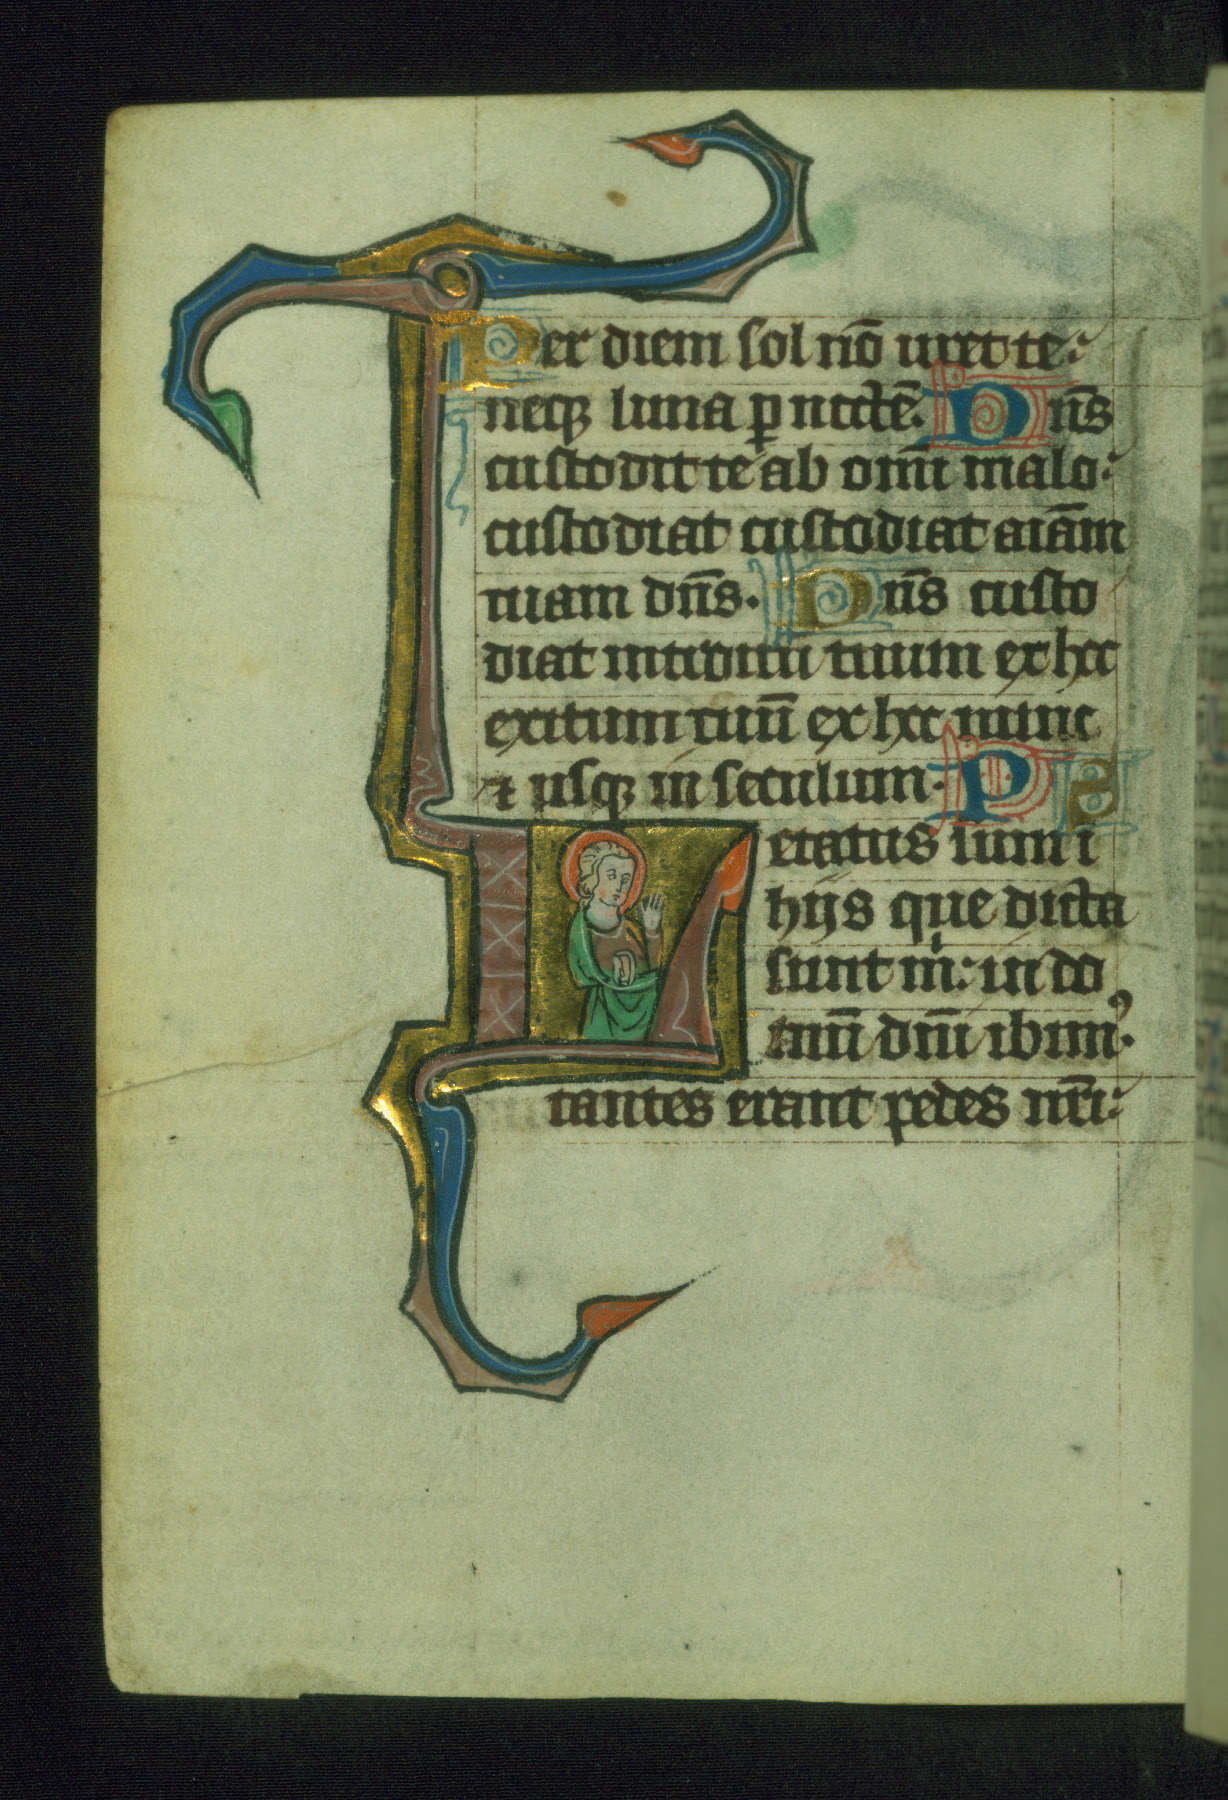 Per diem sol nō uret te:
neq̢ luna p̱ noctē. Dn̄s
custodit te ab om̄i malo:
custodiat custodiat aīam
tuam dn̄s. Dn̄s custo
diat introitū tuum et hoc
exitum tuū ex hoc nunc
⁊ usq̢ in seculum. P S
Letatus sum i
hijs que dicta
sunt m̄: in do
mū dn̄i ibimꝰ.
tantes erant pedes nr̄i: